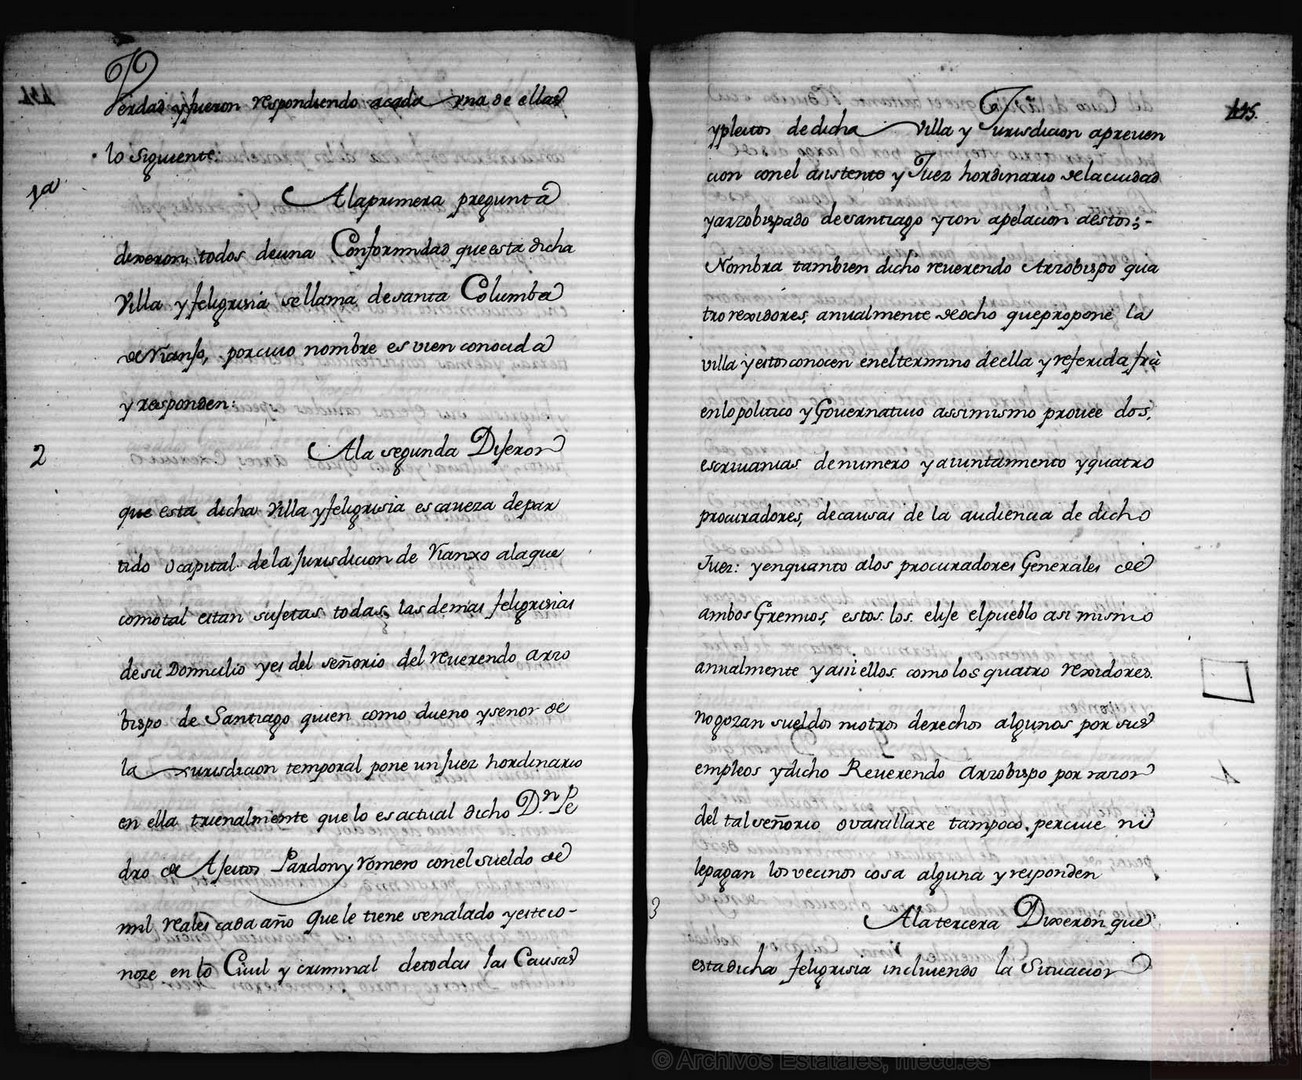 Verdad yfueron respondiendo acada vna de ellas
lo siguiente:
1a
Alaprimera pregunta
dixeron, todos deuna Conformidad que esta dicha
Villa yfeligrisia sellama desanta Columba
de Rianso, porcuio nombre es vien conocida
y responden:
2
Ala segunda Dijeron
que esta dicha Villa yfeligrisia es caveza depar
tido ocapital dela Jurisdicion de Rianxo alaque
comotal estan sujetas todas las demas feligrisias
desu Domicilio yes del señorio del reuerendo arzo
bispo de Santiago quien como dueno ysenor de
la Jurisdicion temporal pone un Juez hordinario
en ella trienalmente que lo es actual dicho D.n Pe
dro de Aseitos Pardon y Romero conel sueldo de
mil reales cada año que le tiene senalado yesteco-
noze en lo Ciuil y criminal detodas las Causas
145.
ypleitos dedicha Villa y Jurisdicion apreuen
cion conel asistente y Juez hordinario dela ciudad
yarzobispado desantiago ycon apelacion aestos;-
Nombra tambien dicho reuerendo Arzobispo qua
tro rexidores, anualmente deocho quepropone la
villa yestos conocen eneltermino deella y referida fra
enlopolitico y Gouernatiuo assimismo prouee dos,
escriuanias denumero yaiuntamiento yquatro
procuradores, decausas de la audiencia de dicho
Juez: yenquanto alos procuradores Generales de
ambos Gremios, estos los elije elpueblo asi mismo
annalmente yasi ellos como los quatro rexidores.
nogozan sueldos niotros derechos algunos por sus
empleos ydicho Reuerendo Arzobispo por razon
del tal señorio ovasallaxe tampoco perciue ni
lepagan los vecinos cosa alguna y responden
3
Ala tercera Dixeron que
estadicha feligrisia incluiendo la Situacion
© Archivos Estatales, mecd.es